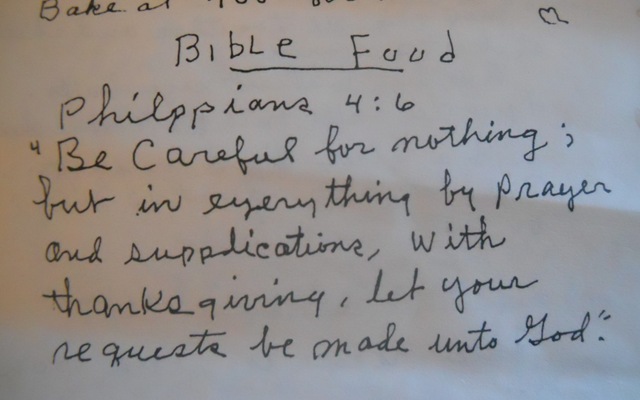 Bake at 400
Bible Food
Philppians 4:6
"Be Careful for nothing;
but in everything by prayer
and suppdications, with
thanksgiving, let your
requests be made unto God."